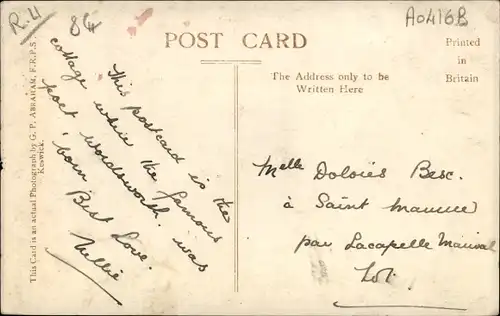 R.4
84
A0416B
POST CARD
Printed
in
Britain
The Address only to be
Written Here
This Card is an actual Photograph by G. P. ABRAHAM, F.R.P.S.
Keswick.
This postcard is the
cottage while the famous
poet Wordsworth. was
born
Best Love.
Nellie
Melle Dolorès Besc.
à Saint Maurice
par Lacapelle Marival
Lot.